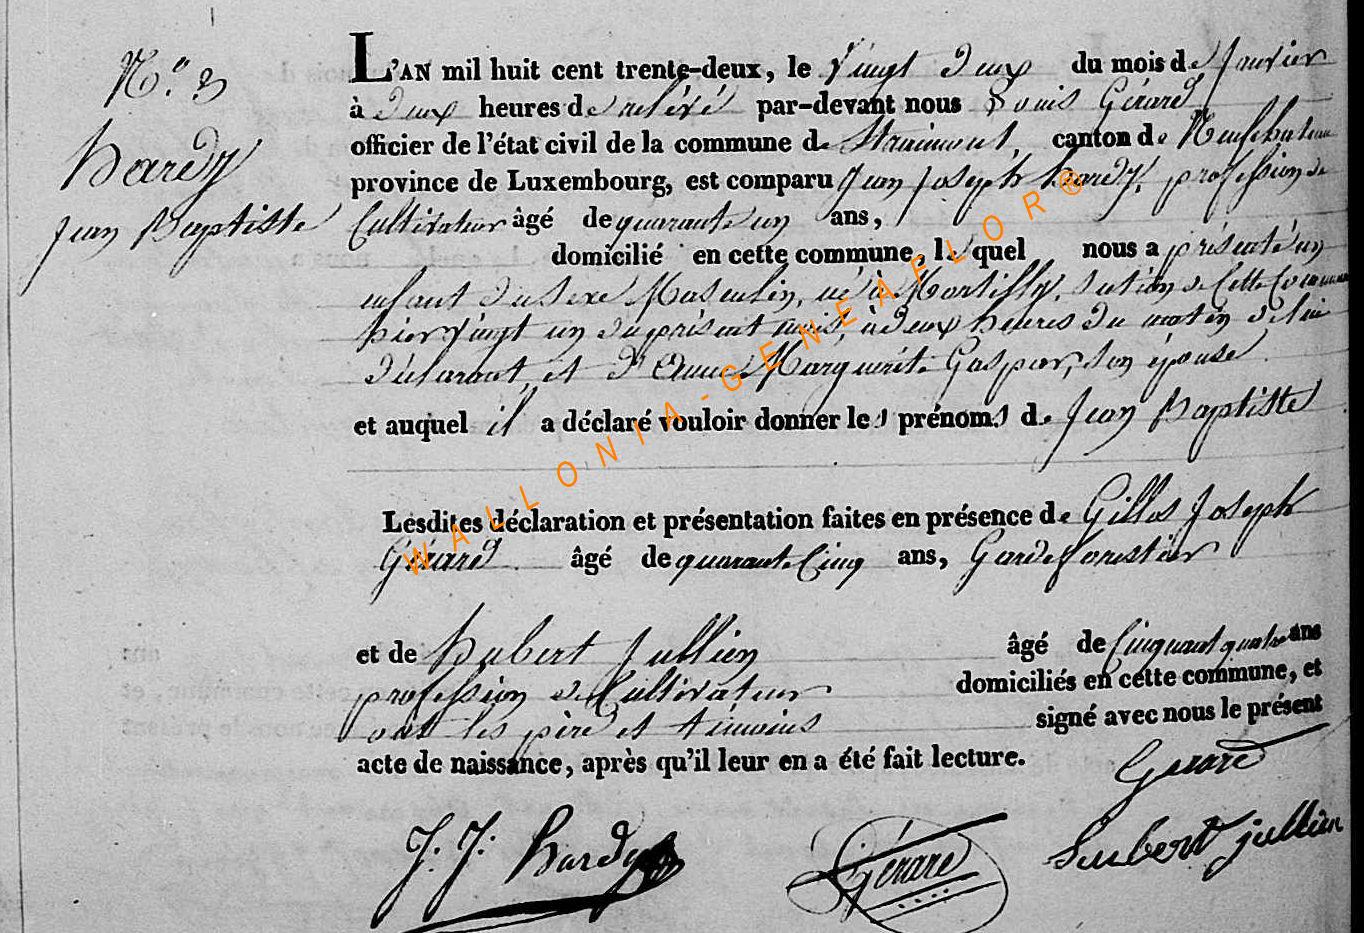 N.° 3
hardy
jean Baptiste
L'AN mil huit cent trente-deux, le vingt deux du mois de janvier
à deux heures de relevé par-devant nous Louis Gérard
officier de l'état civil de la commune de Straimont, canton de Neufchateau
province de Luxembourg, est comparu jean joseph hardy, profession de
Cultivateur âgé de quarante un ans,
domicilié en cette commune, lequel nous a présenté un
enfant du sexe Masculin, né à Martilly, section de Cette Commune
hier vingt un du présent mois, à deux heures du matin de lui
déclarant, et d'Anne Marguerite Gaspar, son épouse
et auquel il a déclaré vouloir donner les prénoms de jean Baptiste
Lesdites déclaration et présentation faites en présence de Gilles joseph
Gérard âgé de quarante Cinq ans, Garde forestier
et de hubert jullien âgé de Cinquant quatre ans
profession de Cultivateur domiciliés en cette commune, et
ont les père et témoins signé avec nous le présent
acte de naissance, après qu'il leur en a été fait lecture.
Gerard
J. J. hardy
Gérard
hubert jullien
WALLONIA-GENEAFLOR®